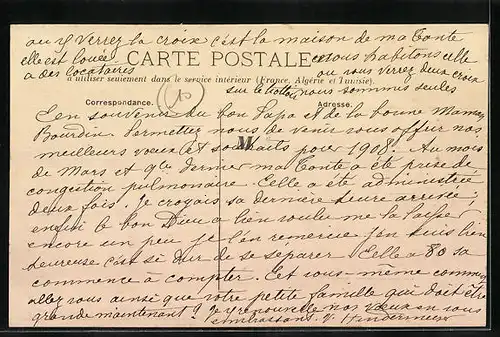 ou y verrez la croix c'est la maison de ma Tante
elle est louée
CARTE POSTALE
et nous habitons celle
a des locataires
ou vous verrez deux croix
à utiliser seulement dans le service intérieur (France, Algérie et Tunisie).
sur le trottoir nous sommes seules
Correspondance.
Adresse.
En souvenir du bon Papa et de la bonne Maman
Bourdin. Permettez nous de venir vous offrir nos
meilleurs voeux et souhaits pour 1908. Au mois
M
de Mars et dernier ma Tante a été prise de
congestion pulmonaire. Elle a été administrée
deux fois. Je croyais sa dernière heure arrivée,
enfin le bon Dieu a bien voulu me la laisser
encore un peu je l'en remercie j'en suis bien
heureuse c'est si dur de se séparer. Elle a 80 sa
commence à compter. Et vous-même comment
allez vous ainsi que votre petite famille qui doit être
grande maintenant? Je renouvelle nos voeux en vous
embrassant